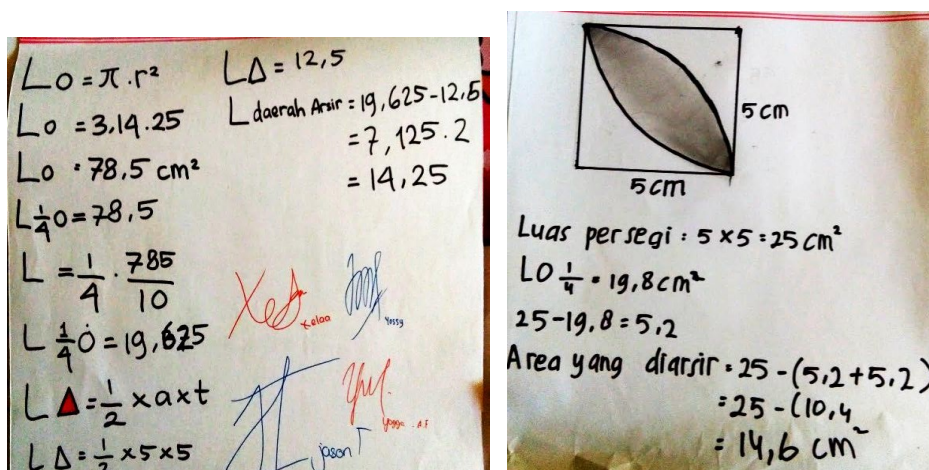 LO = π . r²
LO = 3,14 . 25
LO = 78,5 cm²
L 1/4 O = 78,5
L = 1/4 . 785/10
L 1/4 O = 19,625
L Δ = 1/2 x a x t
L Δ = 1/2 x 5 x 5
LΔ = 12,5
L daerah Arsir = 19,625 - 12,5
= 7,125 . 2
= 14,25
Xelaa
Yossy
Jason T
5 cm
5 cm
Luas persegi : 5 x 5 = 25 cm²
LO 1/4 = 19,8 cm²
25 - 19,8 = 5,2
Area yang diarsir = 25 - (5,2 + 5,2)
= 25 - (10,4
= 14,6 cm²